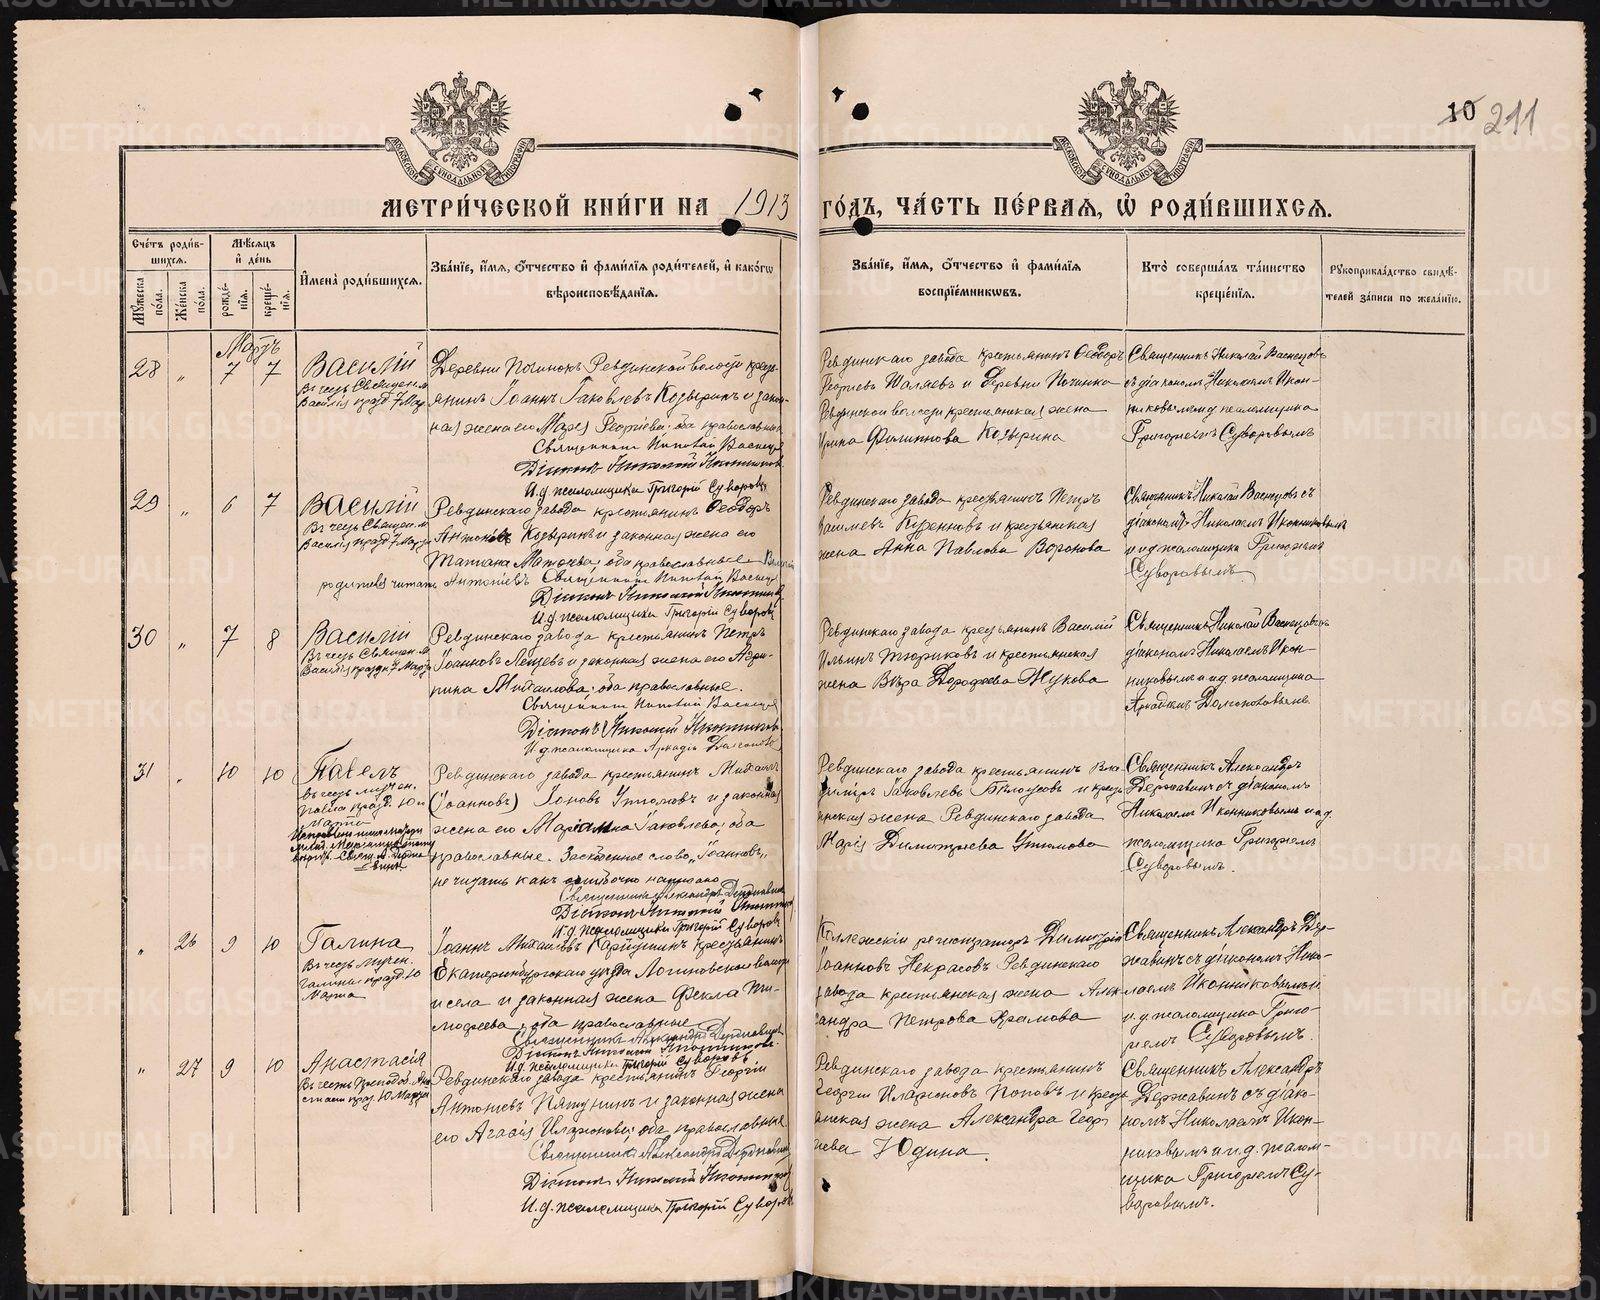 10 211
МЕТРИ́ЧЕСКОЙ КНИ́ГИ НА 1913 ГО́ДЪ, ЧА́СТЬ ПЕ́РВАЯ, Ѡ РОДИ́ВШИХСЯ.
Сче́тъ роди́вшихся.
Му́жеска по́ла.
Же́нска по́ла.
Мѣ́сяцъ и де́нь
рожде́нїя.
креще́нїя.
Имена̀ роди́вшихся.
Зва́нїе, и́мя, о́тчество и фами́лїя роди́телей, и како́гѡ
вѣроисповѣ́данїя.
Зва́нїе, и́мя, о́тчество и фами́лїя
воспрїе́мниковъ.
Кто̀ соверша́лъ та́инство
креще́нїя.
Рукоприкла́дство свидѣ́-
телей за́писи по жела́нїю.
Мартъ
28 „ 7 7
Василій
Въ честь Священ.м.
Василія празд. 7 Мар.
Деревни Починокъ Ревдинской волости крест-
янинъ Іоаннъ Іаковлевъ Козыринъ и закон-
ная жена его Марѳа Георгіева; оба православные
Священникъ Николай Васнецовъ
Діаконъ Николай Иконниковъ
И.д. псаломщика Григорій Суворовъ
Ревдинскаго завода крестьянинъ Ѳеодоръ
Георгіевъ Шаляевъ и Деревни Починка
Ревдинской волости крестьянская жена
Ирина Филиппова Козырина
Священникъ Николай Васнецовъ
съ діакономъ Николаемъ Икон-
никовымъ и и.д. псаломщика
Григоріемъ Суворовымъ
29 „ 6 7
Василій
Въ честь Священ.м.
Василія празд. 7 Марта
Ревдинскаго завода крестьянинъ Ѳеодоръ
Антоновъ Козыринъ и законная жена его
Татіана Матѳеева; оба православные
родителя читать Антоніевъ Священникъ Николай Васнецовъ
Діаконъ Николай Иконниковъ
И.д. псаломщика Григорій Суворовъ
Ревдинскаго завода крестьянинъ Петръ
Куренновъ и крестьянская
жена Анна Павлова Воронова
Священникъ Николай Васнецовъ съ
діакономъ Николаемъ Иконниковымъ
и и.д. псаломщика Григоріемъ
Суворовымъ
30 „ 7 8
Василій
Въ честь Священ.м.
Василія праздн. 7 Марта
Ревдинскаго завода крестьянинъ Петръ
Іоанновъ Лещевъ и законная жена его Агри-
пина Михаилова; оба православные.
Священникъ Николай Васнецовъ
Діаконъ Николай Иконниковъ
И.д. псаломщика Аркадій
Ревдинскаго завода крестьянинъ Василій
Ильинъ Тюриковъ и крестьянская
жена Вѣра Дорофеева Жукова
Священникъ Николай Васнецовъ съ
діакономъ Николаемъ Икон-
никовымъ и и.д. псаломщика
Аркадіемъ
31 „ 10 10
Павелъ
Въ честь мучен.
Павла празд. 10-го
Марта
Ревдинскаго завода крестьянинъ Михаилъ
(Іоанновъ) Іоновъ Утюмовъ и законная
жена его Маріамна Іаковлева; оба
православные. Заскобленное слово „Іоанновъ„
не читать какъ ошибочно написано
Священникъ Александръ Державинъ
Діаконъ Николай Иконниковъ
И.д. псаломщика Григорій Суворовъ
Ревдинскаго завода крестьянинъ Вла-
диміръ Іаковлевъ Бѣлоусовъ и крест-
янская жена Ревдинскаго завода
Марія Димитріева Утюмова
Священникъ Александръ
Державинъ съ діакономъ
Николаемъ Иконниковымъ и и.д.
псаломщика Григоріемъ
Суворовымъ.
„ 26 9 10
Галина
Въ честь Мучен.
Галины празд. 10
Марта
Іоаннъ Михаиловъ Карпушинъ крестьянинъ
Екатеринбургскаго уѣзда Логиновской волости
и села и законная жена Фекла Ти-
моѳеева, оба православные
Священникъ Александръ Державинъ
Діаконъ Николай Иконниковъ
И.д. псаломщика Григорій Суворовъ
Коллежскій регистраторъ Димитрій
Іоанновъ Некрасовъ Ревдинскаго
завода крестьянская жена Алек-
сандра Петрова Храмова
Священникъ Александръ Дер-
жавинъ съ діакономъ Нико-
лаемъ Иконниковымъ и
и.д. псаломщика Григо-
ріемъ Суворовымъ.
„ 27 9 10
Анастасія
Въ честь Преподоб. Ана-
стасіи празд. 10 Марта
Ревдинскаго завода крестьянинъ Георгій
Антоніевъ Пятунинъ и законная жена
его Агаѳія Иларіонова; оба православные
Священникъ Александръ Державинъ
Діаконъ Николай Иконниковъ
И.д. псаломщика Григорій Суворовъ
Ревдинскаго завода крестьянинъ
Георгій Иларіоновъ Поповъ и крест-
янская жена Александра Геор-
гіева Юдина.
Священникъ Александръ
Державинъ съ діако-
номъ Николаемъ Икон-
никовымъ и и.д. псалом-
щика Григоріемъ Су-
воровымъ.
METRIKI.GASO-URAL.RU